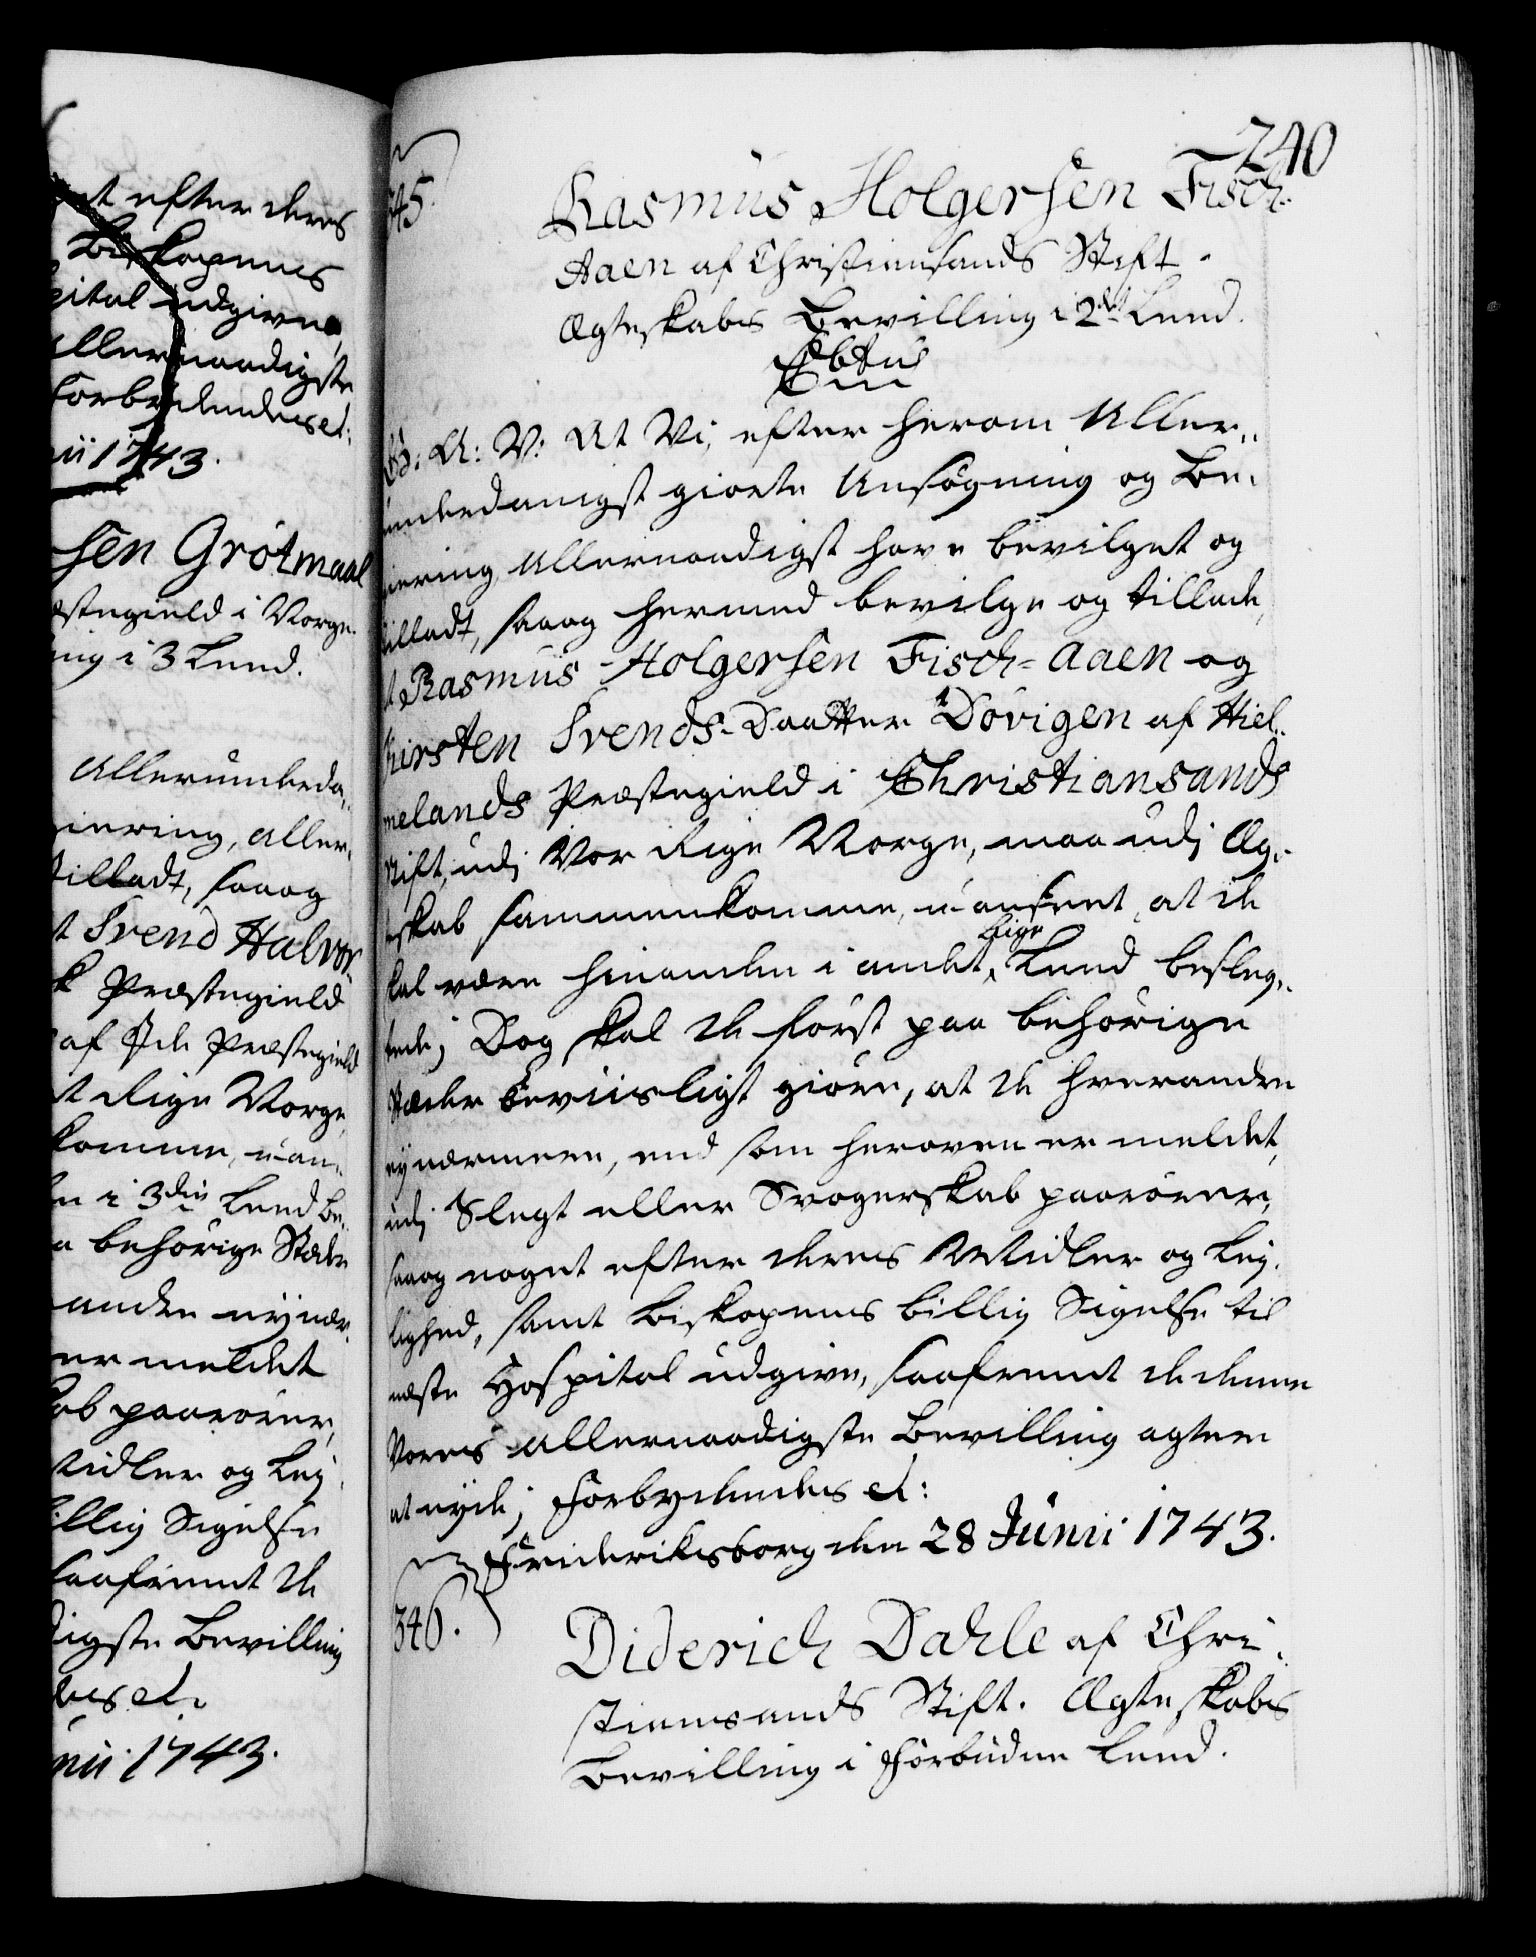 et efter deres
Biskopens
pital udgivne,
Allernaadigste
Forbydendes et:
nii 1743.
sen Grøtmaal
æstegield i Norge.
ing i 3 Leed.
Allerunderda„
giering, aller„
tilladt, saaog
t Svend Halvor„
k Præstegield
af Ide Præstegield
t Rige Norge,
komme, uan„
en i 3die Leed be„
a behörige Stæder
andre ey nær„
er meldet
kab paarörer,
Midler og Ley„
billig Sigelse
saafremt de
digste Bevilling
des et.
nii 1743.
240
345.
Rasmus Holgersen Fisch„
Aaen af Christiansands Stift.
Ægteskabs Bevilling i 2det Leed.
G: A: V: At Vi, efter herom Aller„
underdanigst giorte Ansøgning og Be„
giering, Allernaadigst have bevilget og
tilladt, saaog hermed bevilge og tillade,
at Rasmus Holgersen Fisch=Aaen og
Kirsten Svends-Daatter Døvigen af Hiel„
melands Præstegield i Christiansands
Stift, udj Vor Rige Norge, maa udj Æg„
teskab sammenkomme, uanseet, at de
skal være hinanden i andet Lige Leed besleg„
tede; Dog skal de först paa behörige
Stæder beviisligt giöre, at de hverandre
ey nærmere, end som heroven er meldet,
udj Slegt eller Svogerskab paarörer,
saaog noget efter deres Midler og Ley„
lighed, samt Biskopens billig Sigelse til
næste Hospital udgive, saafremt de denne
Vores allernaadigste Bevilling agter
at nyde; Forbydendes et:
Frideriksborg den 28 Junii 1743.
346.
Diderich Dahle af Chri„
stiansands Stift. Ægteskabs
Bevilling i Forbudne Leed.